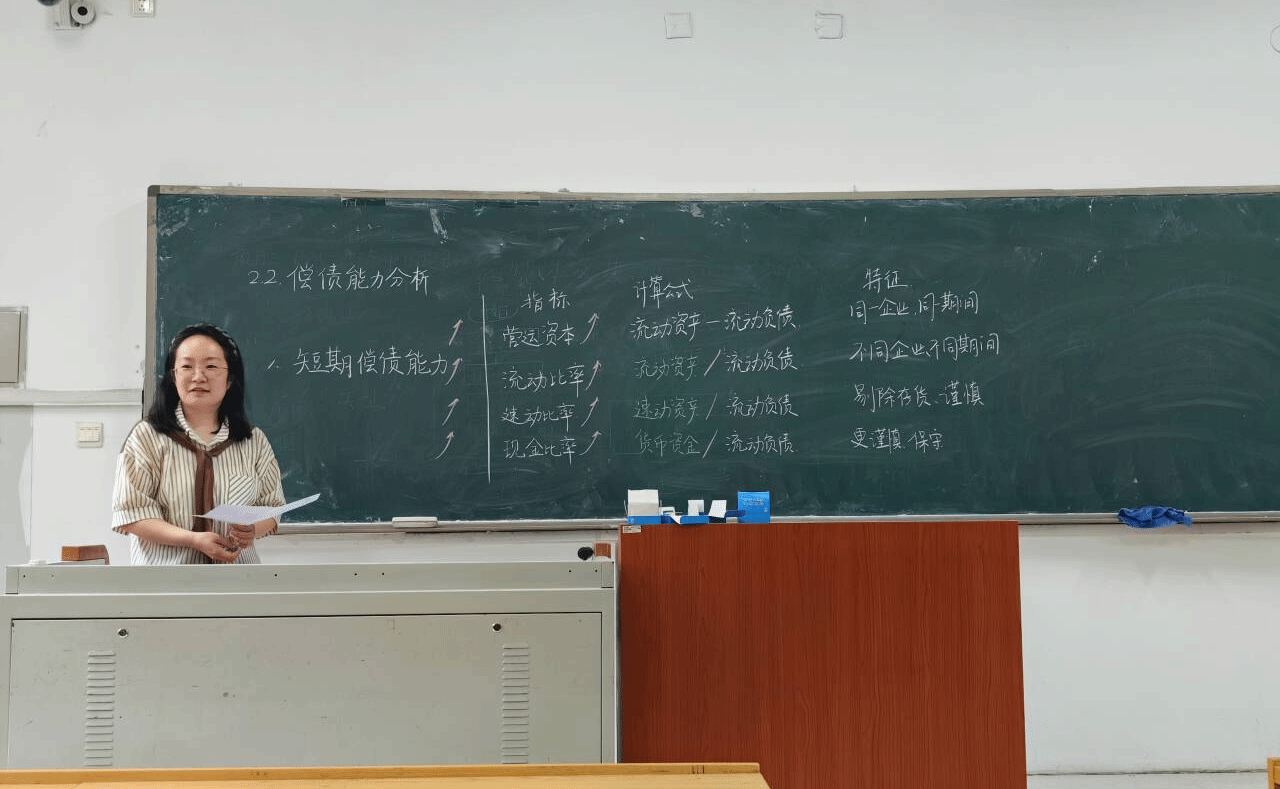 2.2.偿债能力分析
指标 计算公式 特征
营运资本 流动资产-流动负债 同一企业、同一期间
1. 短期偿债能力
流动比率 流动资产/流动负债 不同企业、不同期间
速动比率 速动资产/流动负债 剔除存货、谨慎
现金比率 货币资金/流动负债 更谨慎、保守